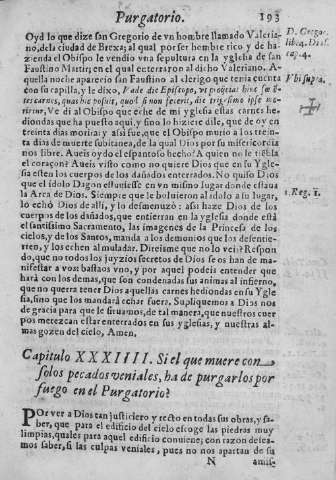 Purgatorio. 193
Oyd lo que dize san Gregorio de vn hombre llamado Valeria-
no, dela ciudad de Brexa; al qual por ser hombre rico y de ha-
zienda el Obispo le vendio vna sepultura en la yglesia de san
Faustino Martir; en el qual ecterraron al dicho Valeriano. A-
quella noche aparecio san Faustino al clerigo que tenia cuenta
con su capilla, y le dixo, Vade dic Episcopo, vt proijciat hinc fœ-
tes carnes, quas hic posuit, quod si non fecerit, die trigesimo ipse mo-
rietur, Ve di al Obispo que eche de mi yglesia estas carnes he-
diondas que ha puesto aqui, y sino lo hiziere dile, que de oy en
treinta dias morirà: y assi fue, que el Obispo murio a los trein-
ta dias de muerte subitanea, de la qual Dios por su misericordia
nos libre. Aueis oydo el espantoso hecho? A quien no le tiẽbla
el coraçon? Aueis visto como no quiere Dios que en su Ygle-
sia esten los cuerpos de los dañados enterrados. No quiso Dios
que el idolo Dagon estuuiesse en vn mismo lugar donde estaua
la Arca de Dios. Siempre que le boluieron al idolo a su lugar,
lo echò Dios de alli, y lo desmenuzò: assi haze Dios de los
cuerpos de los dañados, que entierran en la yglesia donde està
el santissimo Sacramento, las imagenes de la Princesa de los
cielos, y de los Santos, manda a los demonios que los desentie-
rren, y los echen al muladar. Direisme que no lo veis? Respon-
do, que no todos los juyzios secretos de Dios se os han de ma-
nifestar a vosotros bastaos vno, y por aquel podeis entender que
harà con los demas, que son condenadas sus animas al infierno,
que no querra tener Dios aquellas carnes hediondas en su Ygle
sia, sino que los mandarà echar fuera. Supliquemos a Dios nos
de gracia para que le siruamos, de tal manera, que nuestros cuer
pos merezcan estar enterrados en sus yglesias, y nuestras al-
mas gozen del cielo, Amen.
D. Gregor.
lib. 4. Dial.
cap. 4.
Vbi supra.
1. Reg. 5.
Capitulo XXXIIII. Si el que muere con
solos pecados veniales, ha de purgarlos por
fuego en el Purgatorio?
POr ver a Dios tan justiciero y recto en todas sus obras, y sa-
ber, que para el edificio del cielo escoge las piedras muy
limpias, quales para aquel edificio conuiene; con razon desea-
mos saber, si las culpas veniales, pues no nos apartan de su
N amis-